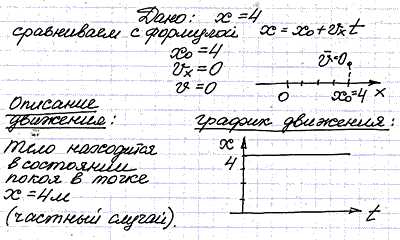 Дано: x = 4
сравниваем с формулой x = x₀ + vₓt
x₀ = 4
vₓ = 0
v = 0
v⃗=0
0 x₀=4 x
Описание
движения:
Тело находится
в состоянии
покоя в точке
x = 4 м
(частный случай).
график движения:
x
4
t